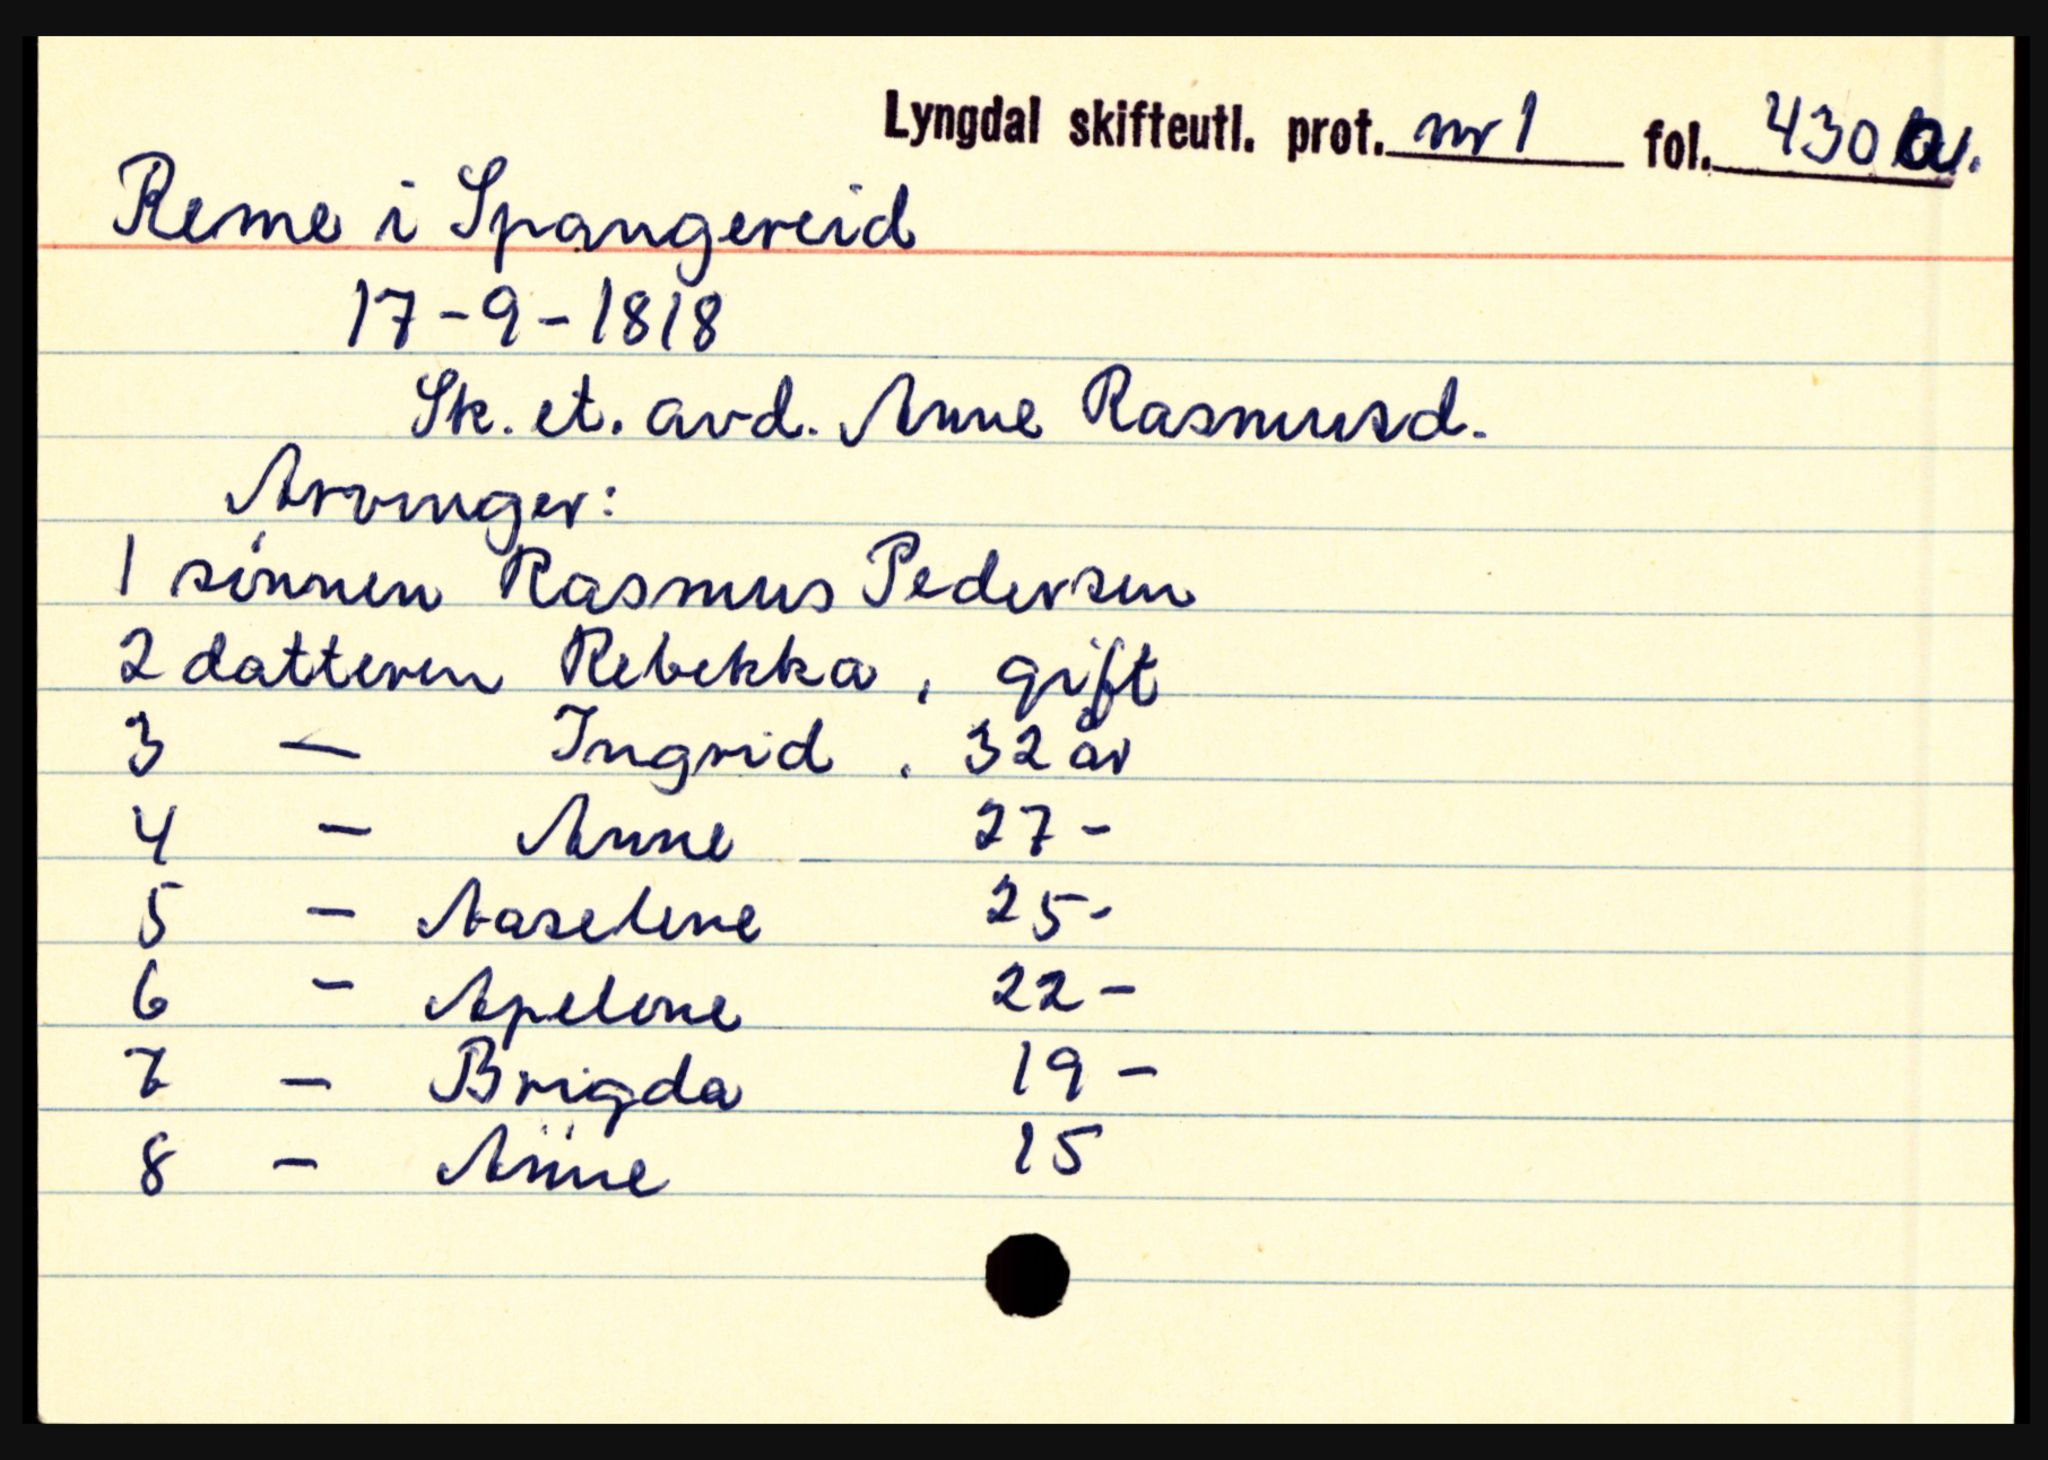 Lyngdal skifteutl. prot. nr 1 fol. 430 a.
Reme i Spangereid
17-9-1818
Sk. et. avd. Anne Rasmusd.
Arvinger:
1 sönnen Rasmus Pedersen
2 datteren Rebekka, gift
3 — Ingrid . 32 år
4 — Anne 27 -
5 — Aaselene 25 -
6 - Apelone 22 -
7 - Brigda 19 -
8 - Anne 15